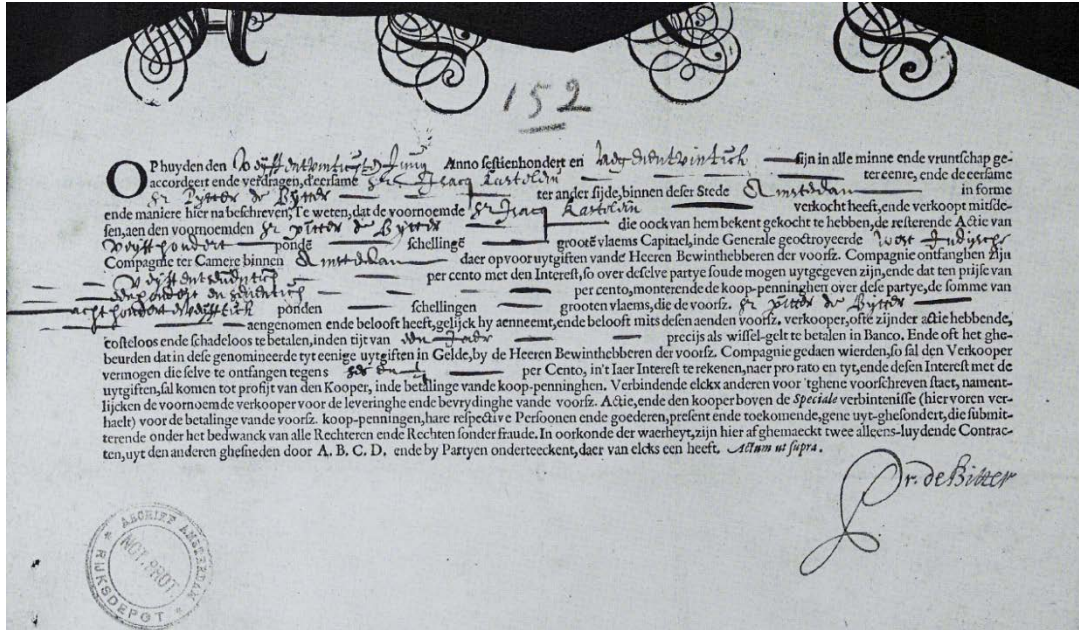 152
OP huyden den Vijffentwintichste Juny Anno sestienhondert en sijn in alle minne ende vruntschap ge-
accordeert ende verdragen, d'eersame Sr. Isacq Kasteleiin ter eenre, ende de eersame
Sr. Pytter de Bytter ter ander sijde, binnen deser Stede Amsterdam in forme
ende maniere hier na beschreven, Te weten, dat de voornoemde Sr. Isacq Kasteleiin verkocht heeft, ende verkoopt mitsde-
sen, aen den voornoemden Sr. Pytter de Bytter die oock van hem bekent gekocht te hebben, de resterende Actie van
Vijffhondert pondē schellingē grootē vlaems Capitael, inde Generale geoctroyeerde West Indysche
Compagnie ter Camere binnen Amsterdam daer op voor uytgiften vande Heeren Bewinthebberen der voorsz. Compagnie ontfanghen zijn
per cento met den Interest, so over deselve partye soude mogen uytgegeven zijn, ende dat ten prijse van
een hondert en per cento, monterende de koop-penninghen over dese partye, de somme van
acht hondert vijfftich ponden schellingen grooten vlaems, die de voorsz. Sr. Pytter de Bytter
aengenomen ende belooft heeft, gelijck hy aenneemt, ende belooft mits desen aenden voorsz. verkooper, ofte zijnder actie hebbende,
costeloos ende schadeloos te betalen, inden tijt van een Jaer precijs als wissel-gelt te betalen in Banco. Ende oft het ghe-
beurden dat in dese genomineerde tyt eenige uytgiften in Gelde, by de Heeren Bewinthebberen der voorsz. Compagnie gedaen wierden, so sal den Verkooper
vermogen die selve te ontfangen tegens per Cento, in't Iaer Interest te rekenen, naer pro rato en tyt, ende desen Interest met de
uytgiften, sal komen tot profijt van den Kooper, inde betalinge vande koop-penninghen. Verbindende elckx anderen voor 'tghene voorschreven staet, nament-
lijcken de voornoemde verkooper voor de leveringhe ende bevrydinghe vande voorsz. Actie, ende den kooper boven de Speciale verbintenisse (hier voren ver-
haelt) voor de betalinge vande voorsz. koop-penningen, hare respective Persoonen ende goederen, present ende toekomende, gene uyt-ghesondert, die submit-
terende onder het bedwanck van alle Rechteren ende Rechten sonder fraude. In oorkonde der waerheyt, zijn hier af ghemaeckt twee alleens-luydende Contrac-
ten, uyt den anderen ghesneden door A. B. C. D. ende by Partyen onderteeckent, daer van elcks een heeft. Actum ut supra.
Pr. de Bitter
ARCHIEF AMSTERDAM
NOT. PROT.
RIJKSDEPOT